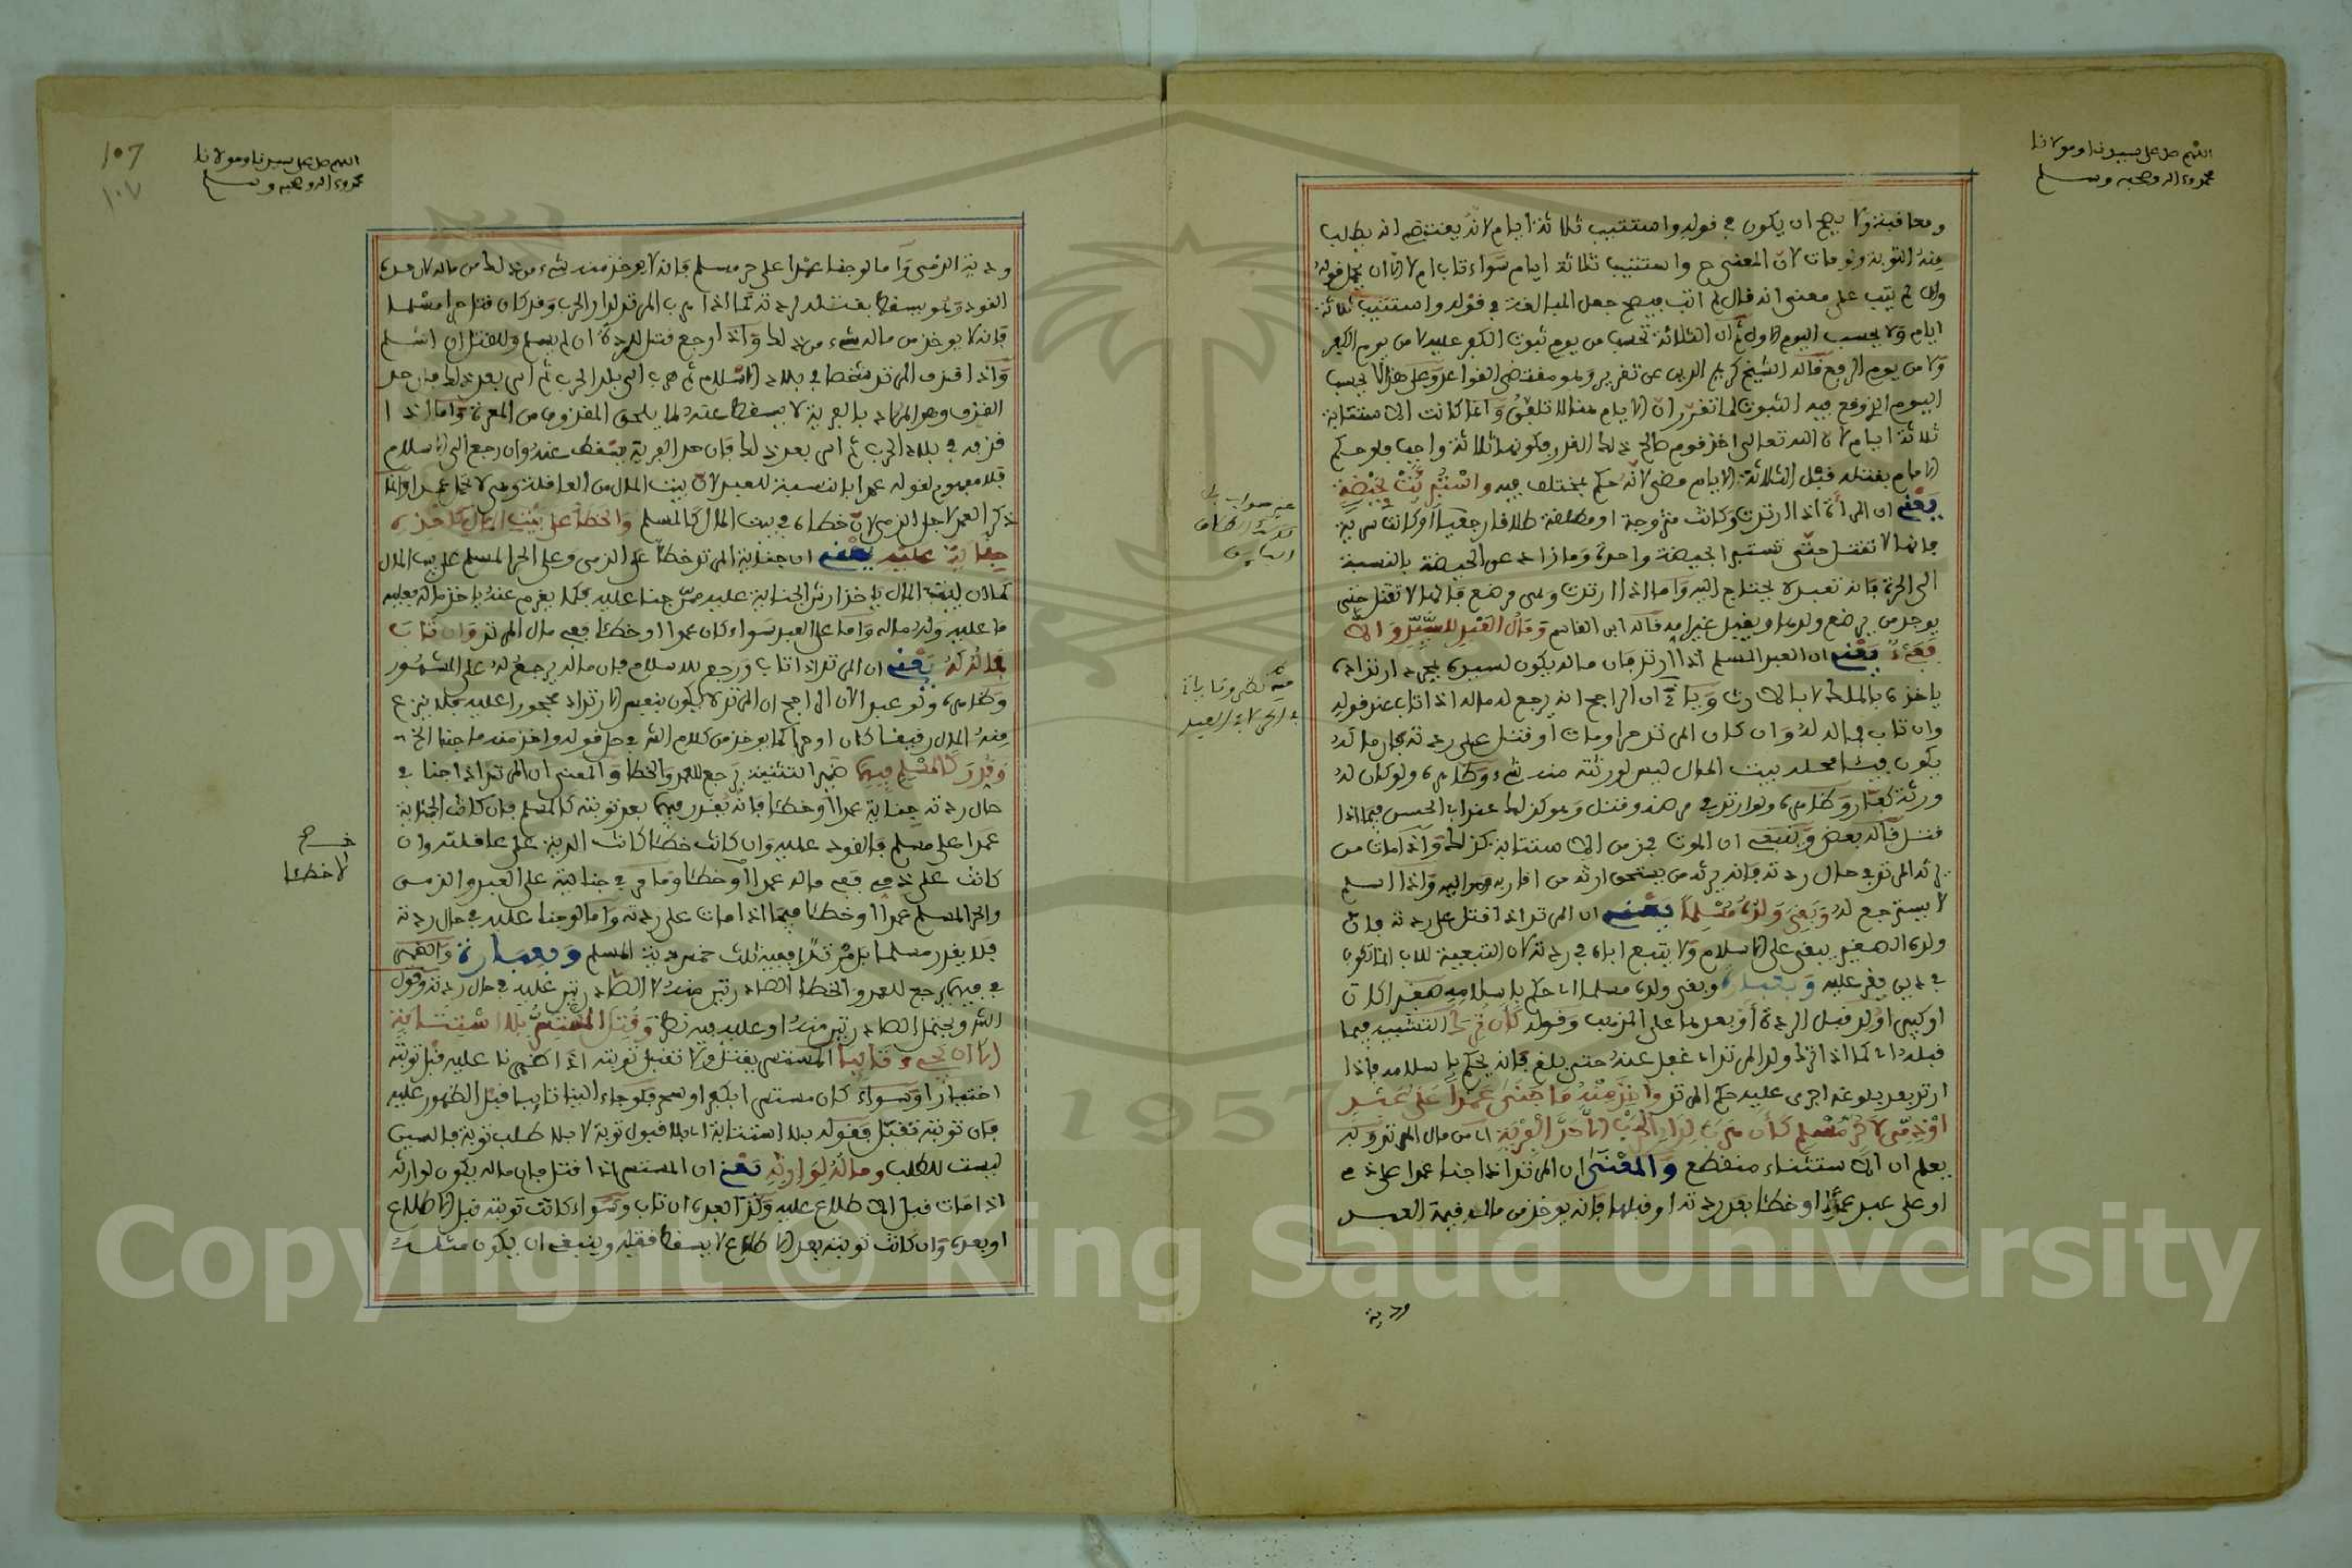 اللهم صل على سيدنا ومولانا
محمد وءاله وصحبه وسلم
ومعاقبته ولا يصح ان يكون في قوله واستتيب ثلاثة ايام لانه يقتضي انه يطلب
منه التوبة ولو مات لان المعنى ح واستتيب ثلاثة ايام سواء تاب ام لا الا ان يحمل قوله
وان لم يتب على معنى انه قال لم اتب فيصح جعل المبالغة في قوله واستتيب ثلاثة
ايام ولا يحسب اليوم الاول ثم ان الثلاثة تحسب من يوم ثبوت الكفر عليه لا من يوم الكفر
ولا من يوم الرفع قاله الشيخ كريم الدين عن تقرير وهو مقتضى القواعد وعلى هذا لا يحسب
اليوم الذي وقع فيه الثبوت لما تقرر ان الايام هنا لا تلفق وانما كانت الاستتابة
ثلاثة ايام لان الله تعالى اخر قوم صالح ذلك القدر فكونها ثلاثة واجب فلو حكم
الامام بقتله قبل الثلاثة الايام مضى لانه حكم بمختلف فيه واستبرئت بحيضة
يعني ان المرأة اذا ارتدت وكانت متزوجة او مطلقة طلاقا رجعيا او كانت سرية
فانها لا تقتل حتى تستبرا بحيضة واحدة وما زاد على الحيضة بالنسبة
الى الحرة فانه تعبد لا يحتاج اليه واما اذا ارتدت وهي مرضع فانها لا تقتل حتى
يوجد من يرضع ولدها ويقبل غير امه قاله ابن القاسم وقال العبد لسيده والا
ففيء يعني ان العبد المسلم اذا ارتد فان ماله يكون لسيده بمجرد ارتداده
ياخذه بالملك لا بالارث وياتي ان الراجح انه يرجع له ماله اذا تاب عند قوله
وان تاب فماله له وان كان المرتد حرا ومات او قتل على ردته فان ماله
يكون فيئا محله بيت المال ليس لورثته منه شيء وظاهره ولو كان له
ورثة كفار وظاهره ولو ارتد في مرضه وقتل وهو كذلك عند ابي الحسن فيما اذا
قتل قاله بعض وينبغي ان الموت في زمن الاستتابة كذلك واذا مات من
يرثه المرتد في حال ردته فانه يرثه من يستحق ارثه من اقاربه واذا اسلم
لا يسترجع له وبقي ولده مسلما يعني ان المرتد اذا قتل على ردته فان
ولده الصغير يبقى على الاسلام ولا يتبع اباه في ردته لان التبعية للاب انما تكون
في دين يقر عليه وبعبارة وبقي ولده مسلما اي حكم باسلامه صغيرا كان
او كبيرا ولد قبل الردة او بعدها على المذهب وقوله كان ترك التشبيه فيما
قبله اي كما اذا ترك ولد المرتد اي غفل عنه حتى بلغ فانه يحكم باسلامه فاذا
ارتد بعد بلوغه اجري عليه حكم المرتد واخذ منه ما جنى عمدا على عبد
او ذمي لا حر مسلم كان هرب لدار الحرب الا حد الفرية اي من مال المرتد وبه
يعلم ان الاستثناء منقطع والمعنى ان المرتد اذا جنا عمدا على ذمي
او على عبد عمدا او خطئا بعد ردته او قبلها فانه يوخذ من ماله قيمة العبد
ودية
107
١٠٧
اللهم صل على سيدنا ومولانا
محمد وءاله وصحبه وسلم
ودية الذمي واما لو جنا عمدا على حر مسلم فانه لا يوخذ منه شيء من ذلك من ماله لان حده
القود وهو يسقط بقتله لردته كما اذا هرب المرتد لدار الحرب وقد كان قتل حرا مسلما
فانه لا يوخذ من ماله شيء من ذلك واذا رجع قتل للردة ان لم يسلم وللقتل ان اسلم
واذا قذف المرتد شخصا في بلاد الاسلام ثم هرب الى بلد الحرب ثم اتى بعد ذلك فان حد
القذف وهو المراد بالفرية لا يسقط عنه لما يلحق المقذوف من المعرة واما اذا
قذفه في بلاد الحرب ثم اتى بعد ذلك فان حد الفرية يسقط عنه وان رجع الى الاسلام
فلا مفهوم لقوله عمدا بالنسبة للعبد لان بيت المال من العاقلة وهي لا تحمل عبدا وانما
ذكر العمد لاجل الذمي لان خطاه في بيت المال كالمسلم والخطأ على بيت المال كاخذه
جناية عليه يعني ان جناية المرتد خطا على الذمي وعلى الحر المسلم على بيت المال
كما ان لبيت المال ياخذ ارش الجناية عليه ممن جنا عليه فكما يغرم عنه ياخذ ماله فعليه
ما عليه وله ماله واما على العبد سواء كان عمدا او خطئا ففي مال المرتد وان تاب
فماله له يعني ان المرتد اذا تاب ورجع للاسلام فان ماله يرجع له على المشهور
وظاهره ولو عبدا لان الراجح ان المرتد لا يكون بنفس الارتداد محجورا عليه فلم ينزع
منه المال رقيقا كان او حرا كما يوخذ من كلام الشر في حل قوله واخذ منه ما جنا الخ
وقدر كالمسلم فيهما ضمير التثنية يرجع للعمد والخطا والمعنى ان المرتد اذا جنا في
حال ردته جناية عمدا او خطئا فانه يقدر فيهما بعد توبته كالمسلم فان كانت الجناية
عمدا على مسلم فالقود عليه وان كانت خطئا كانت الدية على عاقلته وان
كانت على ذمي ففي ماله عمدا او خطئا وما مر في جنايته على العبد والذمي
والحر المسلم عمدا او خطئا فيما اذا مات على ردته واما لو جنا عليه في حال ردته
فلا يقدر مسلما بل مرتدا ففيه ثلث خمس دية المسلم وبعبارة والضمير
في فيهما يرجع للعمد والخطا الصادرين منه لا الصادرين عليه في حال ردته وقول
الشر ويحتمل الصادرين منه او عليه فيه نظر وقتل المستسر بلا استتابة
الا ان يجيء تائبا المستسر يقتل ولا تقبل توبته اذا اظهرنا عليه قبل توبته
اختيارا وسواء كان مستسرا بكفر او سحر فلو جاء الينا تايبا قبل الظهور عليه
فان توبته تقبل فقوله بلا استتابة اي بلا قبول توبة لا بلا طلب توبة فالسين
ليست للطلب وماله لوارثه يعني ان المستسر اذا قتل فان ماله يكون لوارثه
اذا مات قبل الاطلاع عليه وكذا بعده ان تاب وسواء كانت توبته قبل الاطلاع
او بعده وان كانت توبته بعد الاطلاع لا يسقط قتله وينبغي ان يكون مثله
لا خطئا
Copyright © King Saud University
1957